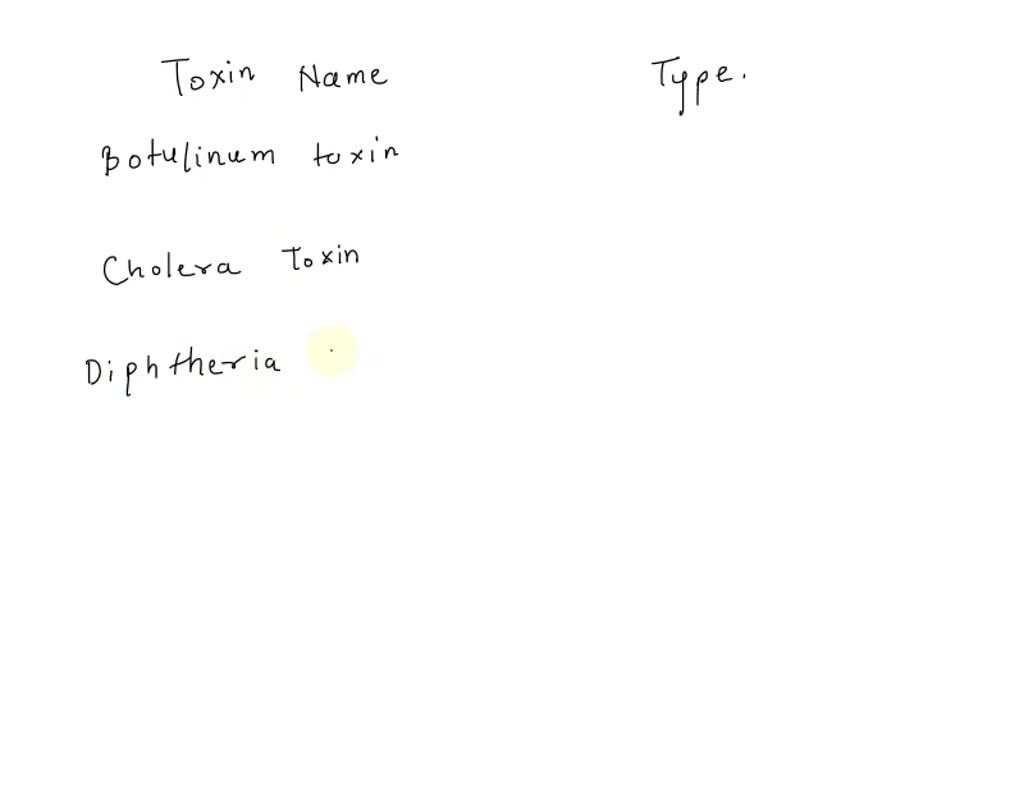 Toxin Name Type.
Botulinum toxin
Cholera Toxin
Diphtheria